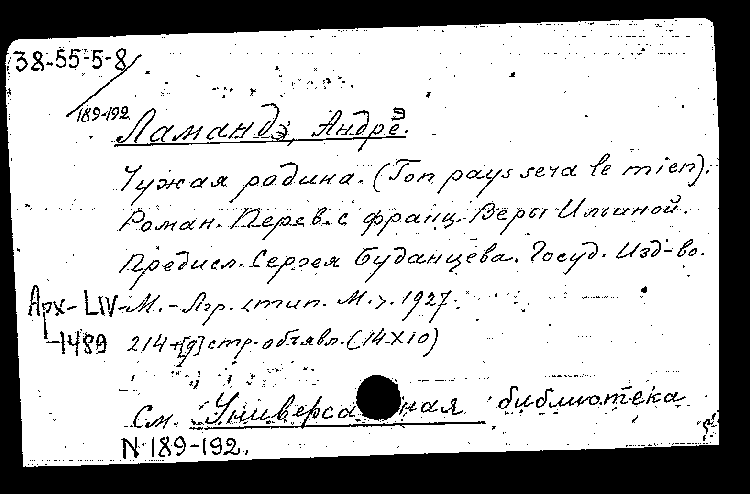 38-55-5-8/
189-192
Ламандэ, Андрэ.
Чужая родина. (Ton pays sera le mien).
Роман. Перев. с франц. Веры Ильиной.
Предисл. Сергея Буданцева. Госуд. Изд-во.
Арх-LIV- М. - Лгр. (тип. М.). 1927.
-1489 214+[9] стр. объявл. (14x10)
См. Универса ная библиотека
N 189-192.